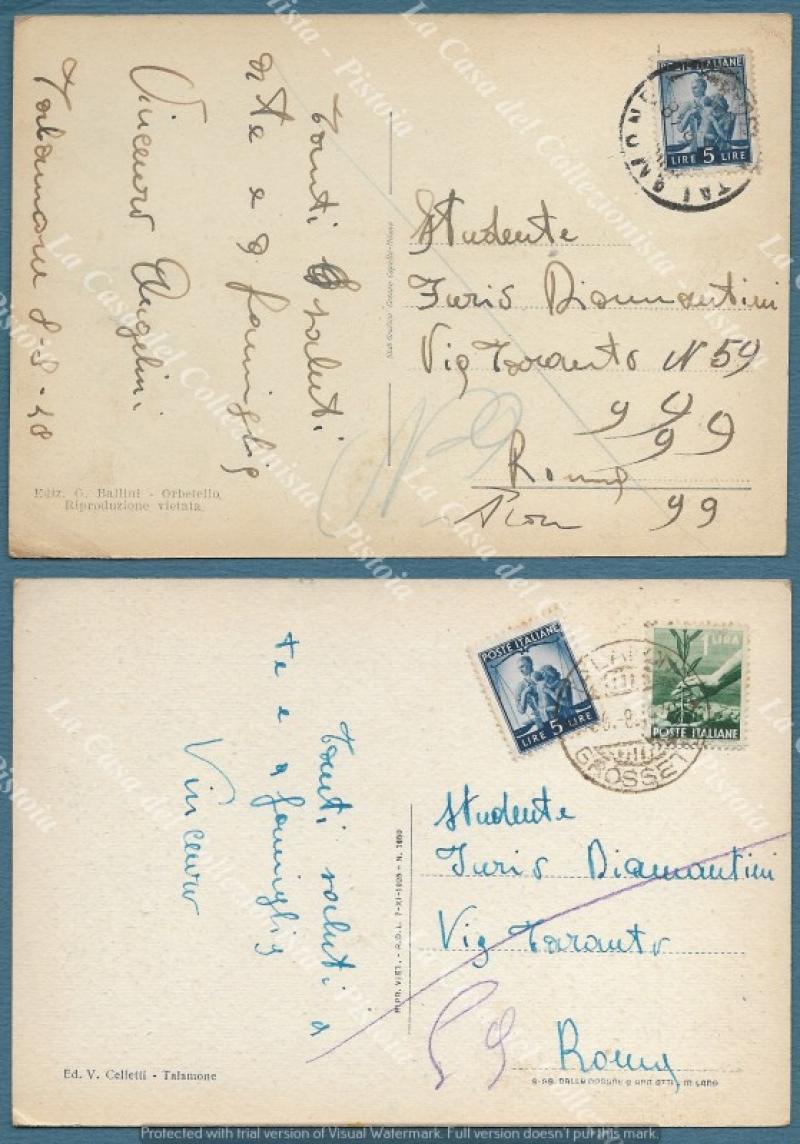 Tanti saluti
a te e a famiglia
Vincenzo Angelini
Talamone 8-8-48
Ediz. G. Ballini - Orbetello
Riproduzione vietata
POSTE ITALIANE
LIRE 5 LIRE
TALAMONE
Studente
Juris Diamantini
Via Taranto N 59
99 9
99
Roma
99
La Casa del Collezionista - Pistoia
Tanti saluti a
te e a famiglia
Vincenzo
Ed. V. Celletti - Talamone
RIPR. VIET. - R.D.L. 7-XI-1925 - N. 1950
POSTE ITALIANE
LIRE 5 LIRE
1 LIRA
POSTE ITALIANE
Studente
Juris Diamantini
Via Taranto
Roma
Protected with trial version of Visual Watermark. Full version doesn't put this mark.